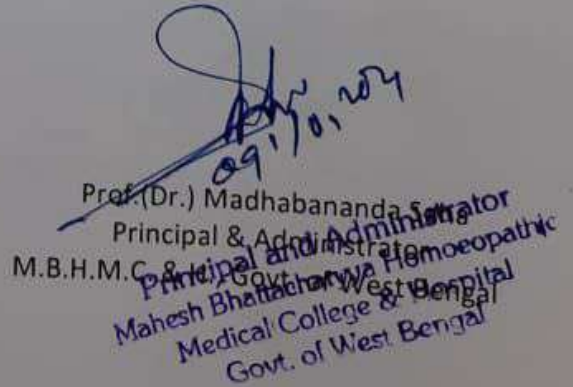 09/01/2024
Prof.(Dr.) Madhabananda
Principal & Administrator
M.B.H.M.C. & H., Govt. of West Bengal
Principal and Administrator
Mahesh Bhattacharyya Homoeopathic
Medical College & Hospital
Govt. of West Bengal